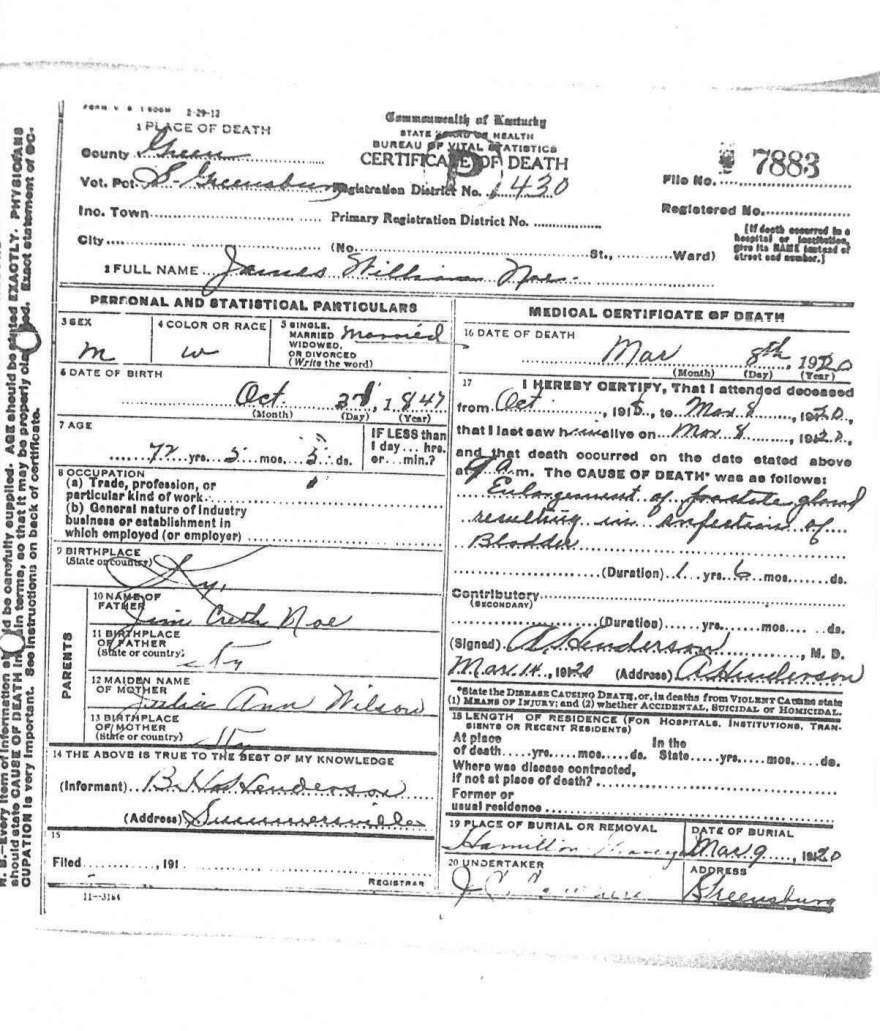 FORM V. S. 1 500M 2-29-12
1 PLACE OF DEATH
County Green
Vot. Pct. S-Greensburg
Inc. Town
City (No. St., Ward)
Commonwealth of Kentucky
STATE BOARD OF HEALTH
BUREAU OF VITAL STATISTICS
CERTIFICATE OF DEATH
Registration District No. 430
Primary Registration District No.
File No. 7883
Registered No.
[If death occurred in a
hospital or institution,
give its NAME instead of
street and number.]
2 FULL NAME James William Noe
PERSONAL AND STATISTICAL PARTICULARS
3 SEX
m
4 COLOR OR RACE
w
5 SINGLE,
MARRIED
WIDOWED,
OR DIVORCED
(Write the word)
Married
6 DATE OF BIRTH
Oct 3d, 1847
(Month) (Day) (Year)
7 AGE
72 yrs. 5 mos. 5 ds.
IF LESS than
1 day ... hrs.
or ... min.?
8 OCCUPATION
(a) Trade, profession, or
particular kind of work
(b) General nature of industry
business or establishment in
which employed (or employer)
9 BIRTHPLACE
(State or country)
Ky,
PARENTS
10 NAME OF
FATHER
Jim Creth Noe
11 BIRTHPLACE
OF FATHER
(State or country)
Ky
12 MAIDEN NAME
OF MOTHER
Julia Ann Wilson
13 BIRTHPLACE
OF MOTHER
(State or country)
Ky
14 THE ABOVE IS TRUE TO THE BEST OF MY KNOWLEDGE
(Informant) B. Henderson
(Address) Summersville
15
Filed , 191
REGISTRAR
11-3184
MEDICAL CERTIFICATE OF DEATH
16 DATE OF DEATH
Mar 8th, 1920
(Month) (Day) (Year)
17 I HEREBY CERTIFY, That I attended deceased
from Oct , 191 , to Mar 8 , 1920,
that I last saw him alive on Mar 8 , 1920,
and that death occurred on the date stated above
at 9 a. m. The CAUSE OF DEATH* was as follows:
Enlargement of prostate gland
resulting in infection of
Bladder
(Duration) 1 yrs. 6 mos. ds.
Contributory
(SECONDARY)
(Duration) yrs. mos. ds.
(Signed) A Henderson, M. D.
Mar. 14, 1920 (Address) A Henderson
*State the DISEASE CAUSING DEATH, or, in deaths from VIOLENT CAUSES state
(1) MEANS OF INJURY; and (2) whether ACCIDENTAL, SUICIDAL OR HOMICIDAL.
18 LENGTH OF RESIDENCE (FOR HOSPITALS, INSTITUTIONS, TRAN-
SIENTS OR RECENT RESIDENTS)
At place In the
of death yrs. mos. ds. State yrs. mos. ds.
Where was disease contracted,
if not at place of death?
Former or
usual residence
19 PLACE OF BURIAL OR REMOVAL
Hamilton
DATE OF BURIAL
Mar 9, 1920
20 UNDERTAKER
J
ADDRESS
Greensburg
N. B.-Every item of information should be carefully supplied. AGE should be stated EXACTLY. PHYSICIANS
should state CAUSE OF DEATH in plain terms, so that it may be properly classified. Exact statement of OC-
CUPATION is very important. See instructions on back of certificate.